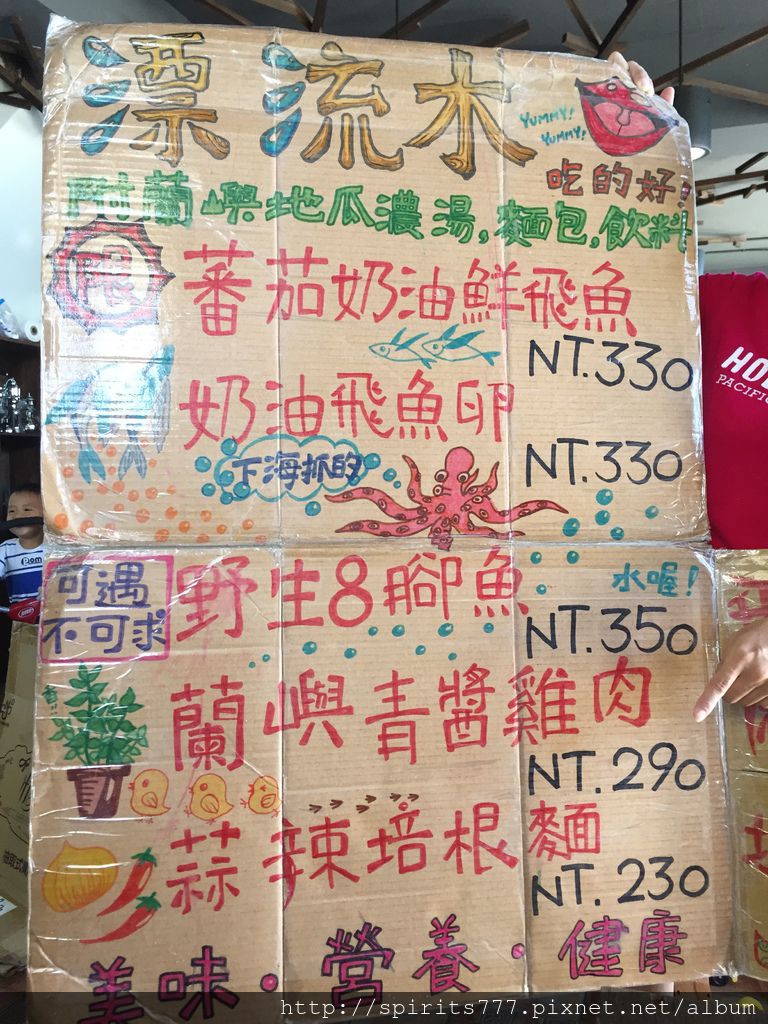 漂流木
YUMMY!
YUMMY!
吃的好!
附蘭嶼地瓜濃湯,麵包,飲料
限
蕃茄奶油鮮飛魚
NT.330
奶油飛魚卵
NT.330
下海抓的
可遇
不可求
野生8腳魚
水喔!
NT.350
蘭嶼青醬雞肉
NT.290
蒜辣培根麵
NT.230
美味·營養·健康
PACIFIC
http://spirits777.pixnet.net/album